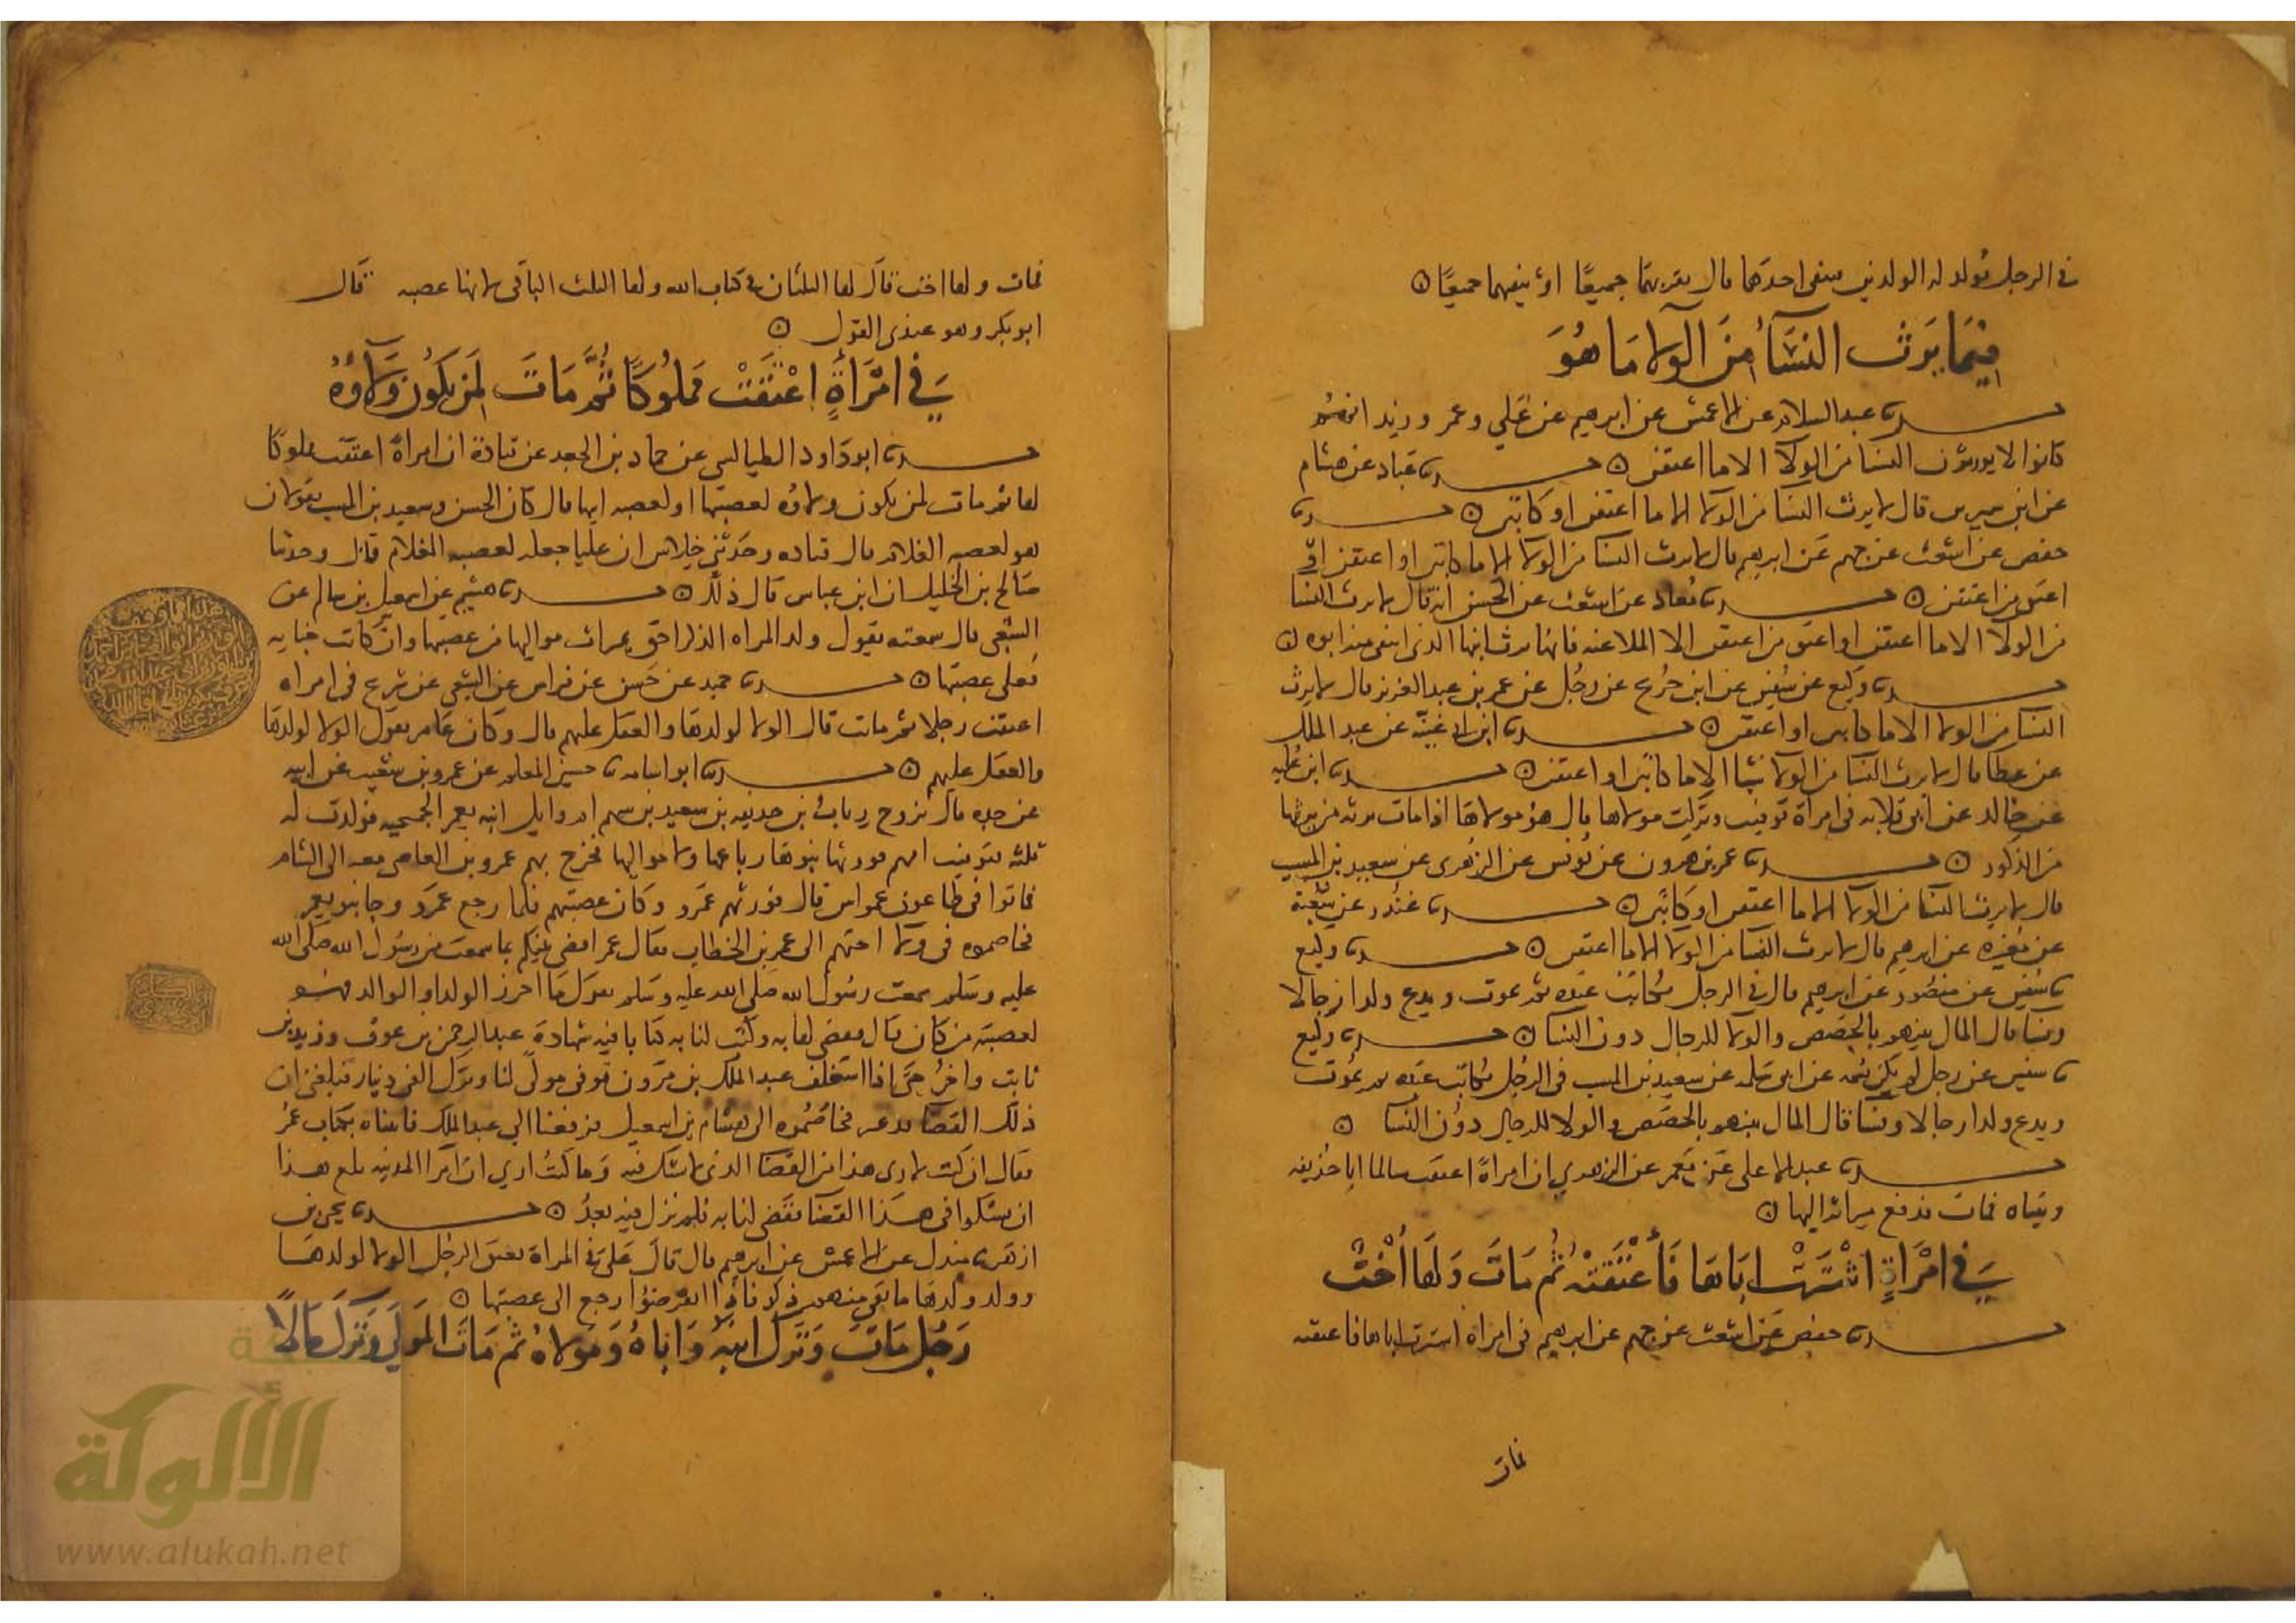 في الرجل يولد له الولدين فينفى احدهما قال يقر بهما جميعًا او ينفيهما جميعًا ه
فيمَا يَرث النسَآ مِنَ الولا مَا هُوَ
حدثنا عبد السلام عن الاعمش عن ابرهيم عن علي وعمر وزيد انهم
كانوا لا يورثون النسا من الولا الا ما اعتقن ه حدثنا عباد عن هشام
عن ابن سيرين قال لا يرث النسا من الولا الا ما اعتقن او كاتبن ه حدثنا
حفص عن اشعث عن جهم عن ابرهيم قال لا يرث النسا من الولا الا ما كاتبن او اعتقن او
اعتق من اعتقن ه حدثنا معاذ عن اشعث عن الحسن انه قال لا يرث النسا
من الولا الا ما اعتقن او اعتق من اعتقن الا الملاعنه فانها ترث ابنها الذي انتفى منه ابوه ه
حدثنا وكيع عن سفين عن ابن جريج عن رجل عن عمر بن عبد العزيز قال لا يرث
النسا من الولا الا ما كاتبن او اعتقن ه حدثنا ابن ابي غنية عن عبد الملك
عن عطا قال لا يرث النسا من الولا شيا الا ما كاتبن او اعتقن ه حدثنا ابن عليه
عن خالد عن ابي قلابه في امراة توفيت وتركت مولاها قال هو مولاها اذا مات يرثه من يرثها
من الذكور ه حدثنا عمر بن هرون عن يونس عن الزهرى عن سعيد بن المسيب
قال لا يرث النسا من الولا الا ما اعتقن او كاتبن ه حدثنا غندر عن شعبة
عن مغيره عن ابرهيم قال لا يرث النسا من الولا الا ما اعتقن ه حدثنا وكيع
نا سفين عن منصور عن ابرهيم قال في الرجل يكاتب عبده ثم يموت ويدع ولدا رجالا
ونسا قال المال بينهم بالحصص والولا للرجال دون النسا ه حدثنا وكيع
نا سفين عن رجل لم يكن يسمه عن ابي سلمه عن سعيد بن المسيب في الرجل يكاتب عبده ثم يموت
ويدع ولدا رجالا ونسا قال المال بينهم بالحصص والولا للرجال دون النسا ه
حدثنا عبد الاعلى عن معمر عن الزهري ان امراةً اعتقت سالما ابا حذيفه
وتبناه فمات فدفع ميراثه اليها ه
في امْرَاةٍ اشْتَرَتْ ابَاهَا فَأَعْتَقَتْهُ ثُم مَاتَ وَلَهَا أُخْتٌ
حدثنا حفص عن اشعث عن جهم عن ابرهيم في امراة اشترت اباها فاعتقته
فمات
فمات ولها اخت قال لها الثلثان في كتاب الله ولها الثلث الباقى لانها عصبه قال
ابو بكر وهو عندى القول ه
في امْرَأةٍ اعْتَقَتْ مَملُوكًا ثُمَّ مَاتَ لِمَن يكُونُ وَلَآؤُهُ
حدثنا ابو داود الطيالسى عن حماد بن الجعد عن قتادة ان امراةً اعتقت مملوكًا
لها ثم مات لمن يكون ولاؤه لعصبتها او لعصبه ابيها قال كان الحسن وسعيد بن المسيب يقولان
هو لعصبه الغلام قال قتاده وحدثني خلاس ان عليا جعله لعصبه الغلام قال وحدثنا
صالح بن الخليل ان ابن عباس قال ذلك ه حدثنا هشيم عن اسمعيل بن سالم عن
الشعبى قال سمعته يقول ولد المراه الذكر احق بميراث مواليها من عصبتها وان كانت جنايه
فعلى عصبتها ه حدثنا حميد عن حسن عن فراس عن الشعبي عن شريح في امراه
اعتقت رجلا ثم مات قال الولا لولدها والعقل عليهم قال وكان عامر يقول الولا لولدها
والعقل عليهم ه حدثنا ابو اسامه نا حسين المعلم عن عمرو بن شعيب عن ابيه
عن جده قال تزوج رياب بن حذيفه بن سعيد بن سهم ام وايل ابنه يعمر الجمحيه فولدت له
ثلثه فتوفيت امهم فورثها بنوها رباعها وولا مواليها فخرج بهم عمرو بن العاصى معه الى الشام
فماتوا في طاعون عمواس قال فورثهم عمرو وكان عصبتهم فلما رجع عمرو وجا بنو يعمر
فخاصموه في ولا اختهم الى عمر بن الخطاب فقال عمر اقضى بينكم بما سمعت من رسول الله صلى الله
عليه وسلم سمعت رسول الله صلى الله عليه وسلم يقول ما احرز الولد او الوالد فهو
لعصبته من كان قال فقضى لنا به وكتب لنا به كتابا فيه شهادة عبد الرحمن بن عوف وزيد بن
ثابت واخر حتى اذا استخلف عبد الملك بن مرون توفى مولىً لنا وترك الفى دينار فبلغنى ان
ذلك القضا قد غير فخاصموه الى هشام بن اسمعيل فرفعنا الي عبد الملك فاتيناه بكتاب عمر
فقال ان كنت لارى هذا من القضا الذى لا شك فيه وما كنت ارى ان امر المدينه بلغ هذا
ان يشكوا في هذا القضا فقضى لنا به فلم نزل فيه بعد ه حدثنا يحيى بن
ازهر نا مندل عن الاعمش عن ابرهيم قال قال علي في المراة تعتق الرجل الولا لولدها
وولد ولدها ما بقى منهم ذكر فاذا انقرضوا رجع الى عصبتها ه
رَجُل مَاتَ وَتَرَكَ ابنهُ وَابَاهُ وَمَولاهُ ثم مَاتَ المَولَي وَتَرَكَ مَالاً
الألوكة
www.alukah.net